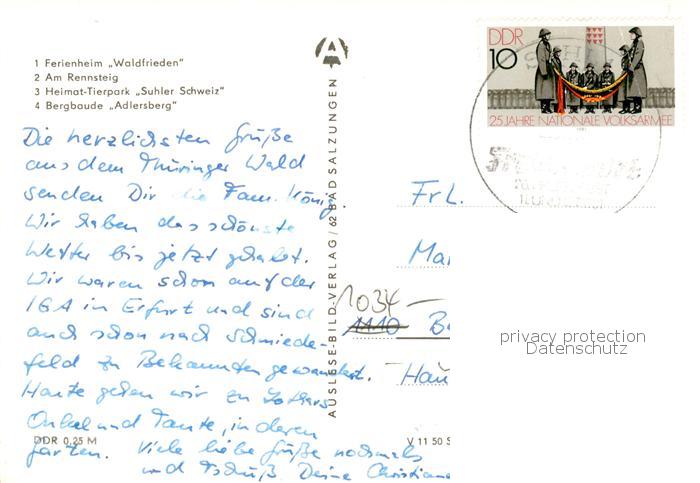 1 Ferienheim „Waldfrieden“
2 Am Rennsteig
3 Heimat-Tierpark „Suhler Schweiz“
4 Bergbaude „Adlersberg“
Die herzlichsten Grüße
aus dem Thüringer Wald
senden Dir die Fam. König.
Wir haben das schönste
Wetter bis jetzt gehabt.
Wir waren schon auf der
IGA in Erfurt und sind
auch schon nach Schmiede-
feld zu Bekannten gewandert.
Heute gehen wir zu Lothars
Onkel und Tante, in deren
Garten. Viele liebe Grüße nochmals
und Tschüß Deine Christiane
DDR 0,25 M
V 11 50 S
AUSLESE-BILD-VERLAG/62 BAD SALZUNGEN
DDR
10
25 JAHRE NATIONALE VOLKSARMEE
Frl.
Mar
1034
1110 Be
Hau
privacy protection
Datenschutz